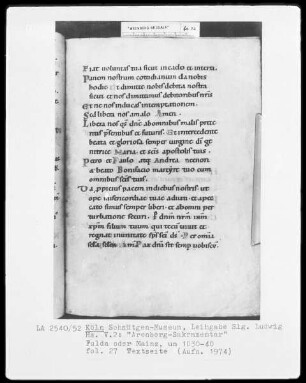 Fiat uoluntas tua sicut in caelo et in terra.
Panem nostrum cotidianum da nobis
hodie. Et dimitte nobis debita nostra
sicut et nos dimittimus debitoribus nris
Et ne nos inducas in temptationem.
Sed libera nos a malo. Amen.
Libera nos qs dne ab omnibus malis prete
ritis psentibus et futuris. Et intercedente
beata et gloriosa semper uirgine di ge
netrice Maria et scis apostolis tuis
Petro et Paulo atq; Andrea necnon
a beato Bonifacio martyre tuo cum
omnibus scis tuis.
Da ppicius pacem in diebus nostris ut
ope misericordiae tuae adiuti et a pec
cato simus semper liberi et ab omni per
turbatione securi. P dnm nrm ihm
xpm filium tuum qui tecu uiuit et
regnat in unitate sps sci ds Per omnia
scla sclor. Amen. Pax dni sit semp uobiscu.
LA 2540/52 Köln Schnütgen-Museum, Leihgabe Slg. Ludwig
Hs. V.2: "Arenberg-Sakramentar"
Fulda oder Mainz, um 1030-40
fol. 27 Textseite (Aufn. 1972)